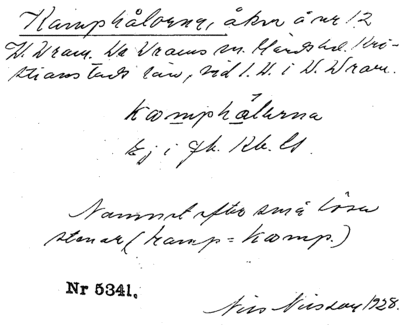 Kamphålorna, åker å nr 12
V. Vram. V. Vrams sn. Gärds hd. Kri-
stianstads län, vid l. H. i V. Vram.
kæmphålerna
Ej i Jb. Kb. Ll.
Namnet efter små lösa
stenar (kamp = kæmp.)
Nr 5341.
Nils Nilsson 1928.